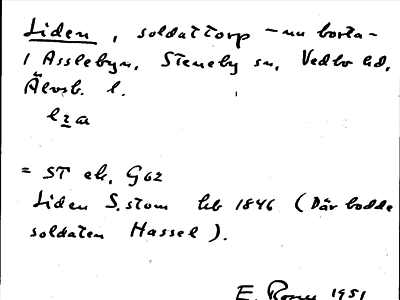 Liden, soldattorp - nu borta -
i Asslebyn, Steneby sn, Vedbo hd,
Älvsb. l.
= ST ek. G62
Liden S.stom hb 1846 (Där bodde
soldaten Hassel).
E. 1951